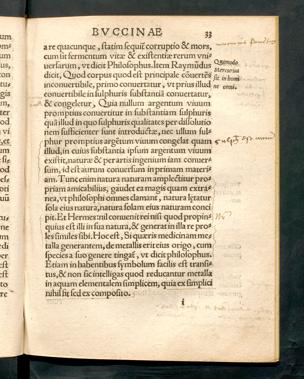 BVCCINAE 33
a re quacunque, statim sequit̃ corruptio & mors,
cum sit fermentum vitæ & existentiæ rerum vni-
uersarum, vt dicit Philosophus. Item Raymũdus
dicit, Quod corpus quod est principale cõuertẽs
inconuertibile, primo conuertitur, vt prius illud
conuertibile in substantiã sulphuris conuertatur,
& congeletur, Quia nullum argentum viuum
promptius conuertitur in substantiam sulphuris
quã illud in quo sulphuris qualitates per dissolutio
nem sufficienter sunt introductæ, nec ullum sul-
phur promptius argentum viuum congelat quam
illud, in cuius substantia ipsum argentum viuum
existit, naturæ & per artis ingenium iam conuer-
sum, id est aurum conuersum in primam materi-
am. Tunc enim natura naturam amplectitur pro-
priam amicabilius, gaudet ea magis quam extra-
nea, vt philosophi omnes clamant, natura lętatur
sola eius natura, natura solam eius naturam conci
pit. Et Hermes nil conuenit rei nisi quod propin-
quius est illi in sua natura, & generat in illa re pro-
les similes sibi. Hoc est, Si quæris medicinam me-
talla generantem, de metallis erit eius origo, cum
species a suo genere tingat̃, vt dicit philosophus.
Etiam in habentibus symbolum facilis est transi-
tus, & non sic intelligas quod reducantur metalla
in aquam elementalem simplicem, quia ex simplici
nihil sit sed ex composito.
i
Quomodo
Mercurius
sit in homi
ne